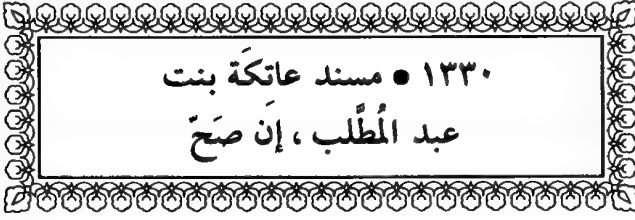 ١٣٣٠ ● مسند عاتكَة بنت
عبد المُطَّلب ، إن صَحّ